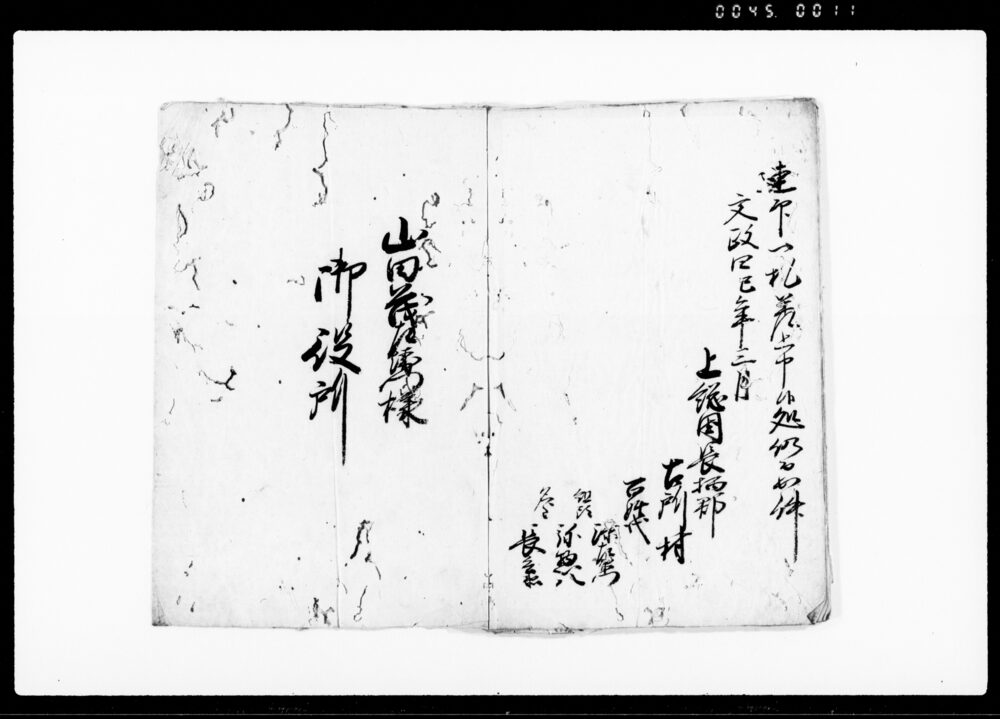 0045.0011
連印一札差上申候処仍而如件
文政四巳年三月
上総国長柄郡
古所村
百姓代
組頭
弥惣八
名主
長兵衛
山田茂左衛門様
御役所